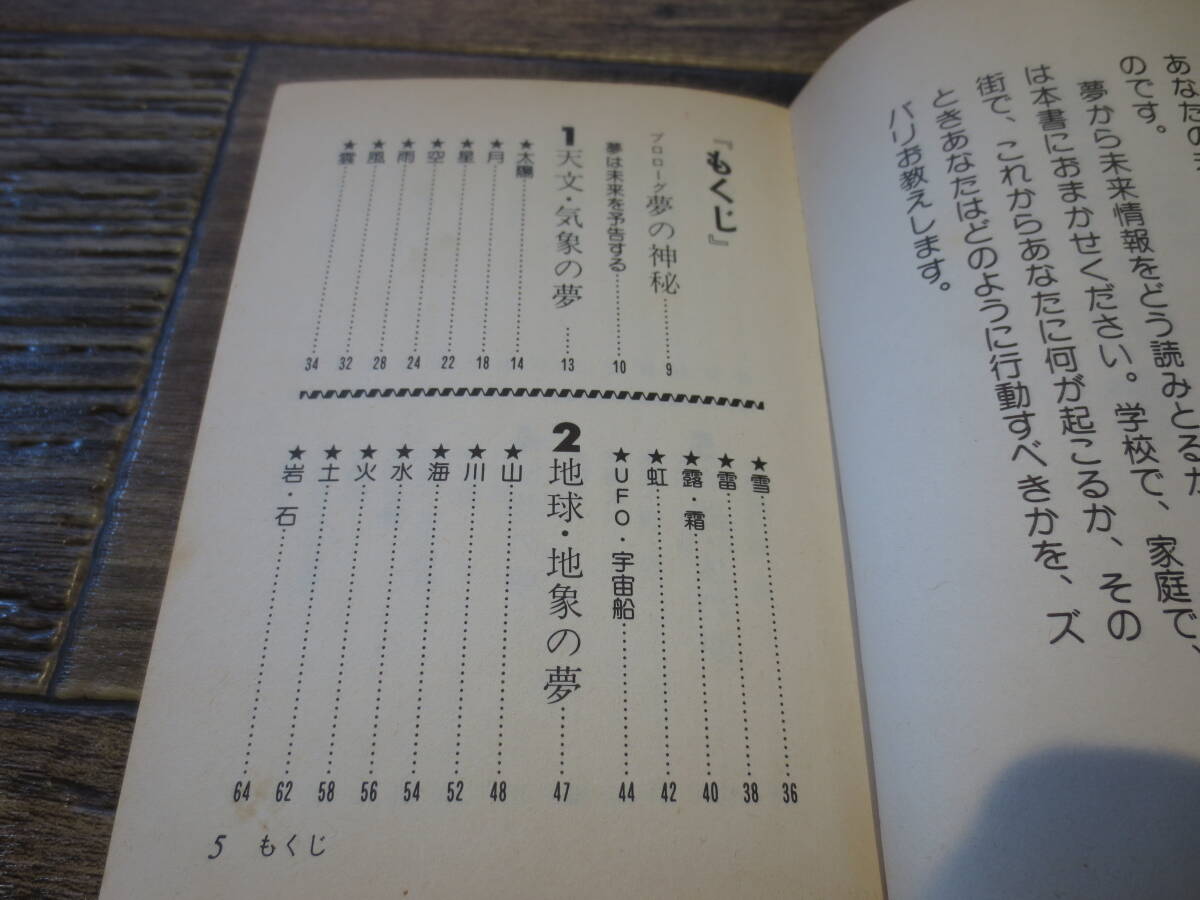 あなたの
のです。
夢から未来情報をどう読みとるか
は本書におまかせください。学校で、家庭で、
街で、これからあなたに何が起こるか、その
ときあなたはどのように行動すべきかを、ズ
バリお教えします。
『もくじ』
プロローグ 夢の神秘……9
夢は未来を予告する……10
1 天文・気象の夢……13
★太陽……14
★月……18
★星……22
★空……24
★雨……28
★風……32
★雲……34
★雪……36
★雷……38
★露・霜……40
★虹……42
★UFO・宇宙船……44
2 地球・地象の夢……47
★山……48
★川……52
★海……54
★水……56
★火……58
★土……62
★岩・石……64
5 もくじ